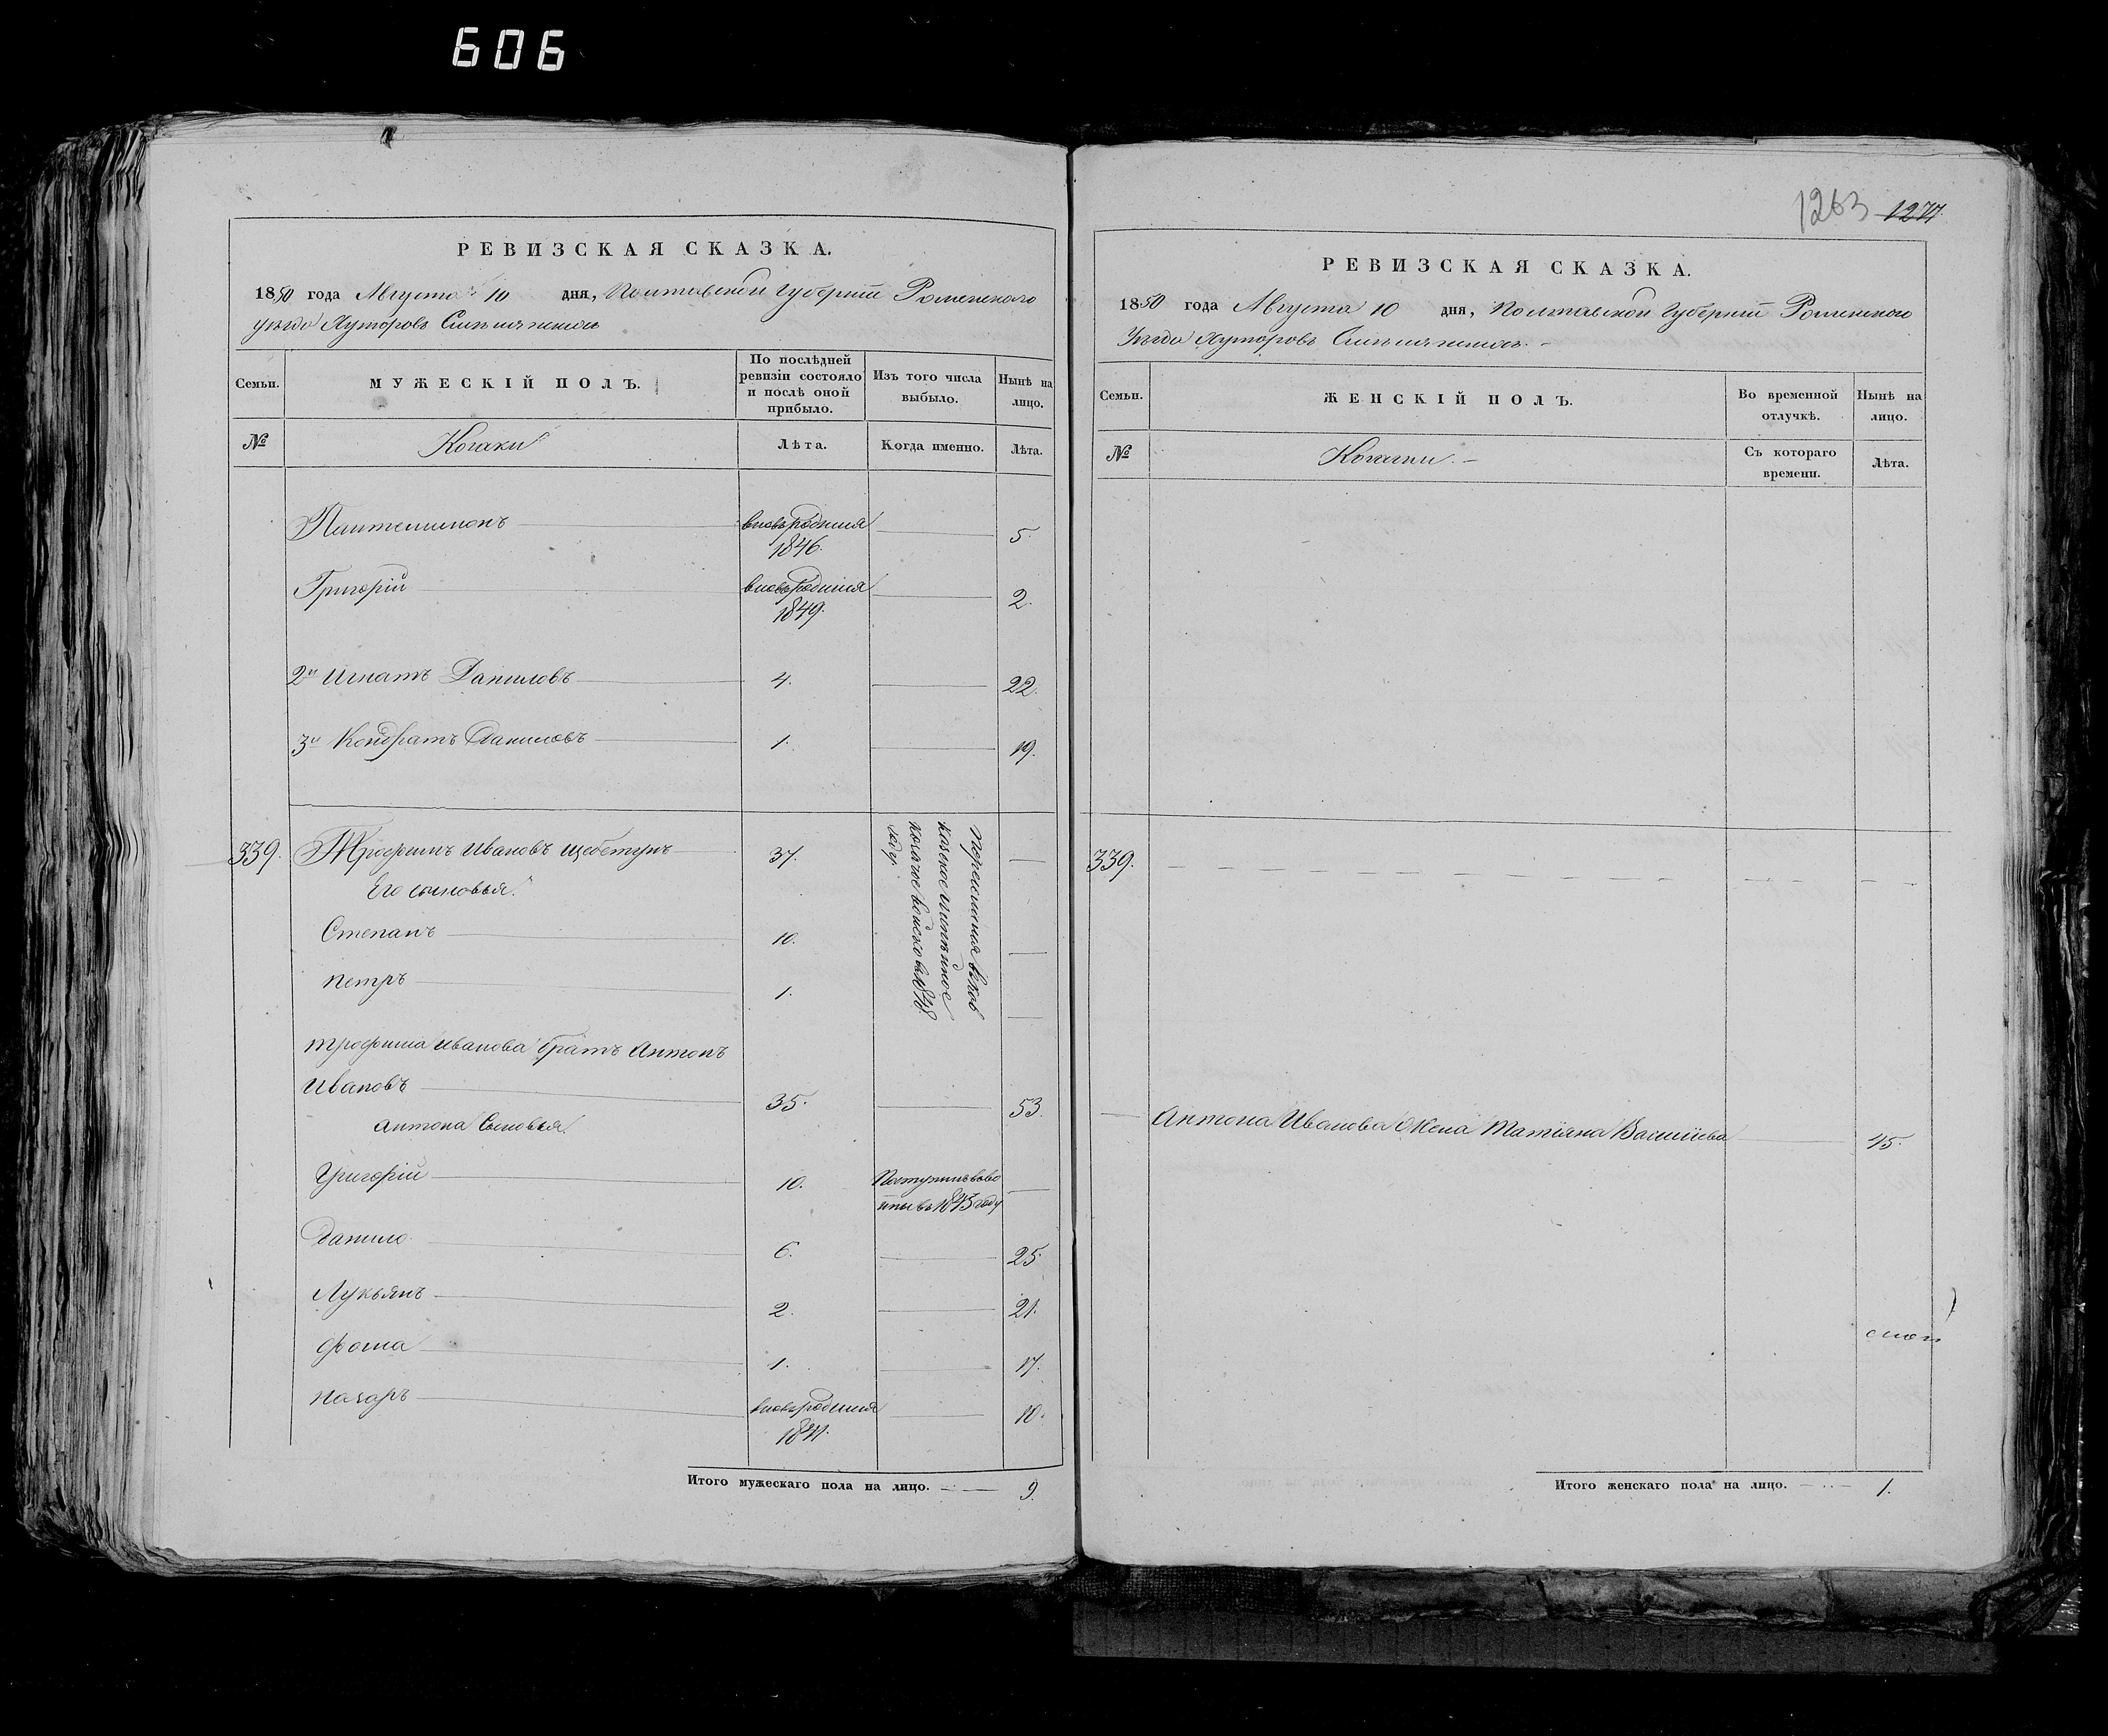 606
РЕВИЗСКАЯ СКАЗКА.
1850 года Августа 10 дня, Полтавской Губерніи Роменского
уезда Хуторовъ
Семьи.
МУЖЕСКІЙ ПОЛЪ.
По послѣдней
ревизіи состояло
и послѣ оной
прибыло.
Изъ того числа
выбыло.
Нынѣ на
лицо.
№
Козаки
Лѣта.
Когда именно.
Лѣта.
Пантелимонъ вновьродился 1846. 5.
Григорій вновьродился 1849. 2.
2й Игнатъ Даниловъ 4. 22.
3й Кондратъ Даниловъ 1. 19.
339. Трофимъ Ивановъ Щебетунъ 37.
Его сыновья.
Степанъ 10.
Петръ 1.
Переселился въ Кав
казское Линѣйное
Козачое Войско въ 1848.
году.
Трофима Иванова братъ Антонъ
Ивановъ 35. 53.
Антона Сыновья.
Григорій 10. Поступилъ
въ 1843 году
Данило 6. 25.
Лукьянъ 2. 21.
Фома 1. 17.
Назаръ вновьродился 1841. 10.
Итого мужескаго пола на лицо. 9.
1263 1277.
РЕВИЗСКАЯ СКАЗКА.
1850 года Августа 10 дня, Полтавской Губерніи Роменского
Уезда Хуторовъ
Семьи.
ЖЕНСКІЙ ПОЛЪ.
Во временной
отлучкѣ.
Нынѣ на
лицо.
№
Козачки.
Съ котораго
времени.
Лѣта.
339.
Антона Иванова Жена Татіяна Василіева 45.
Итого женскаго пола на лицо. 1.